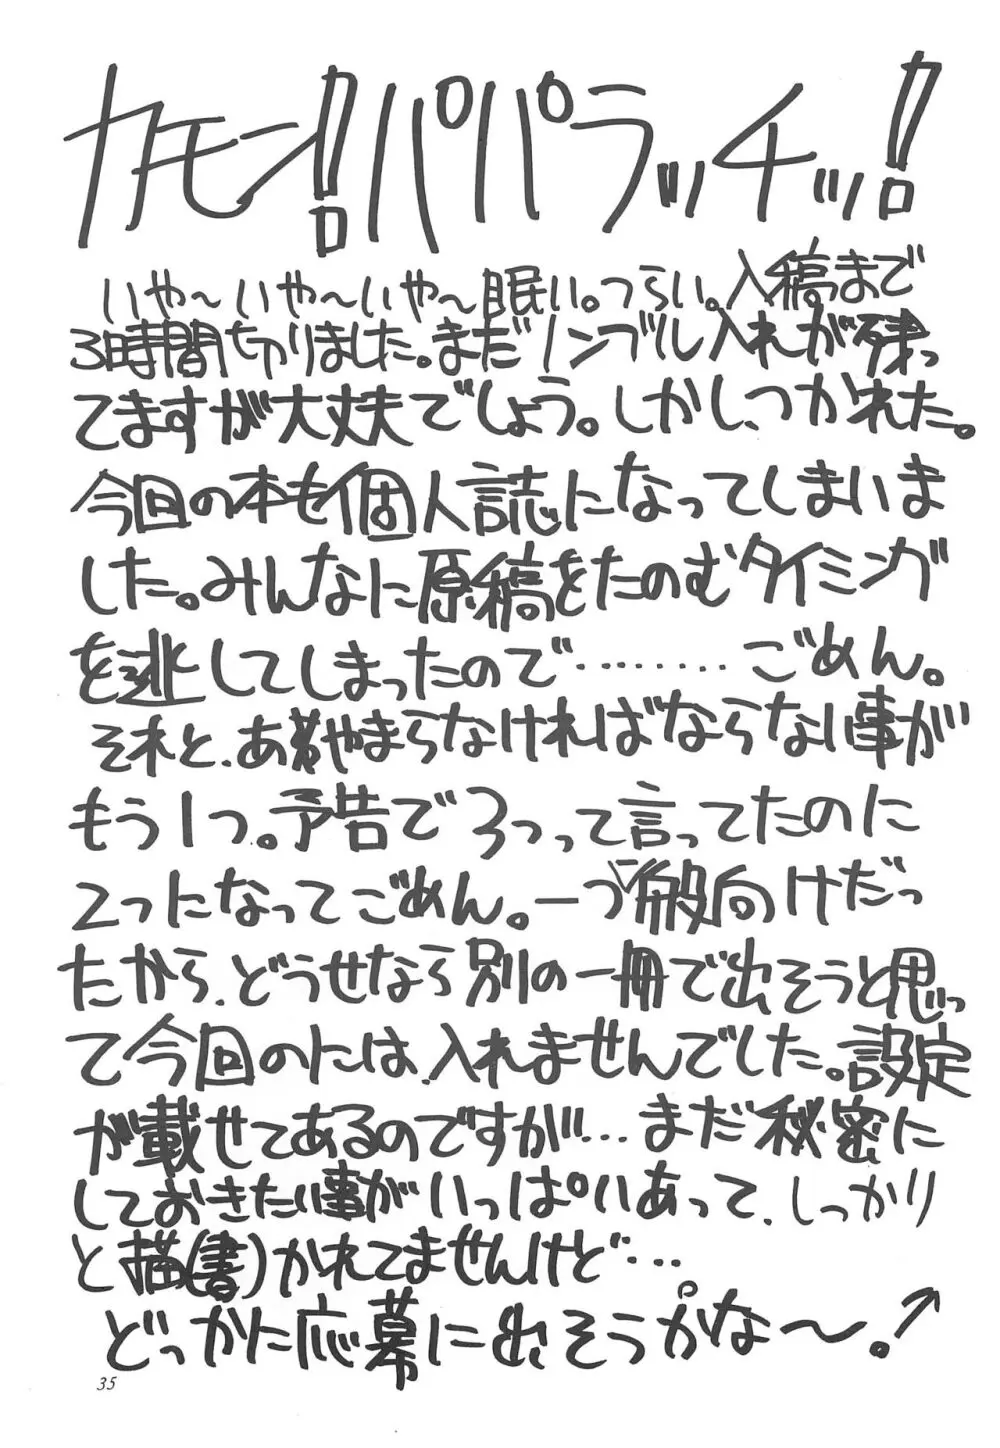 カモン!パパラッチッ!
いや～いや～いや～眠い。つらい。入稿まで
3時間切りました。まだノンブル入れが残っ
てますが大丈夫でしょう。しかし、つかれた。
今回の本も個人誌になってしまいま
した。みんなに原稿をたのむタイミング
を逃してしまったので………ごめん。
それと、あやまらなければならない事が
もう1つ。予告で3つって言ってたのに
2つになってごめん。一つ般向けだっ
たから、どうせなら別の一冊で出そうと思っ
て今回のには、入れませんでした。設定
が載せてあるのですが…まだ秘密に
しておきたい事がいっぱいあって、しっかり
と描(書)かれてませんけど…
どっかに応募に出そうかな～。↗
35